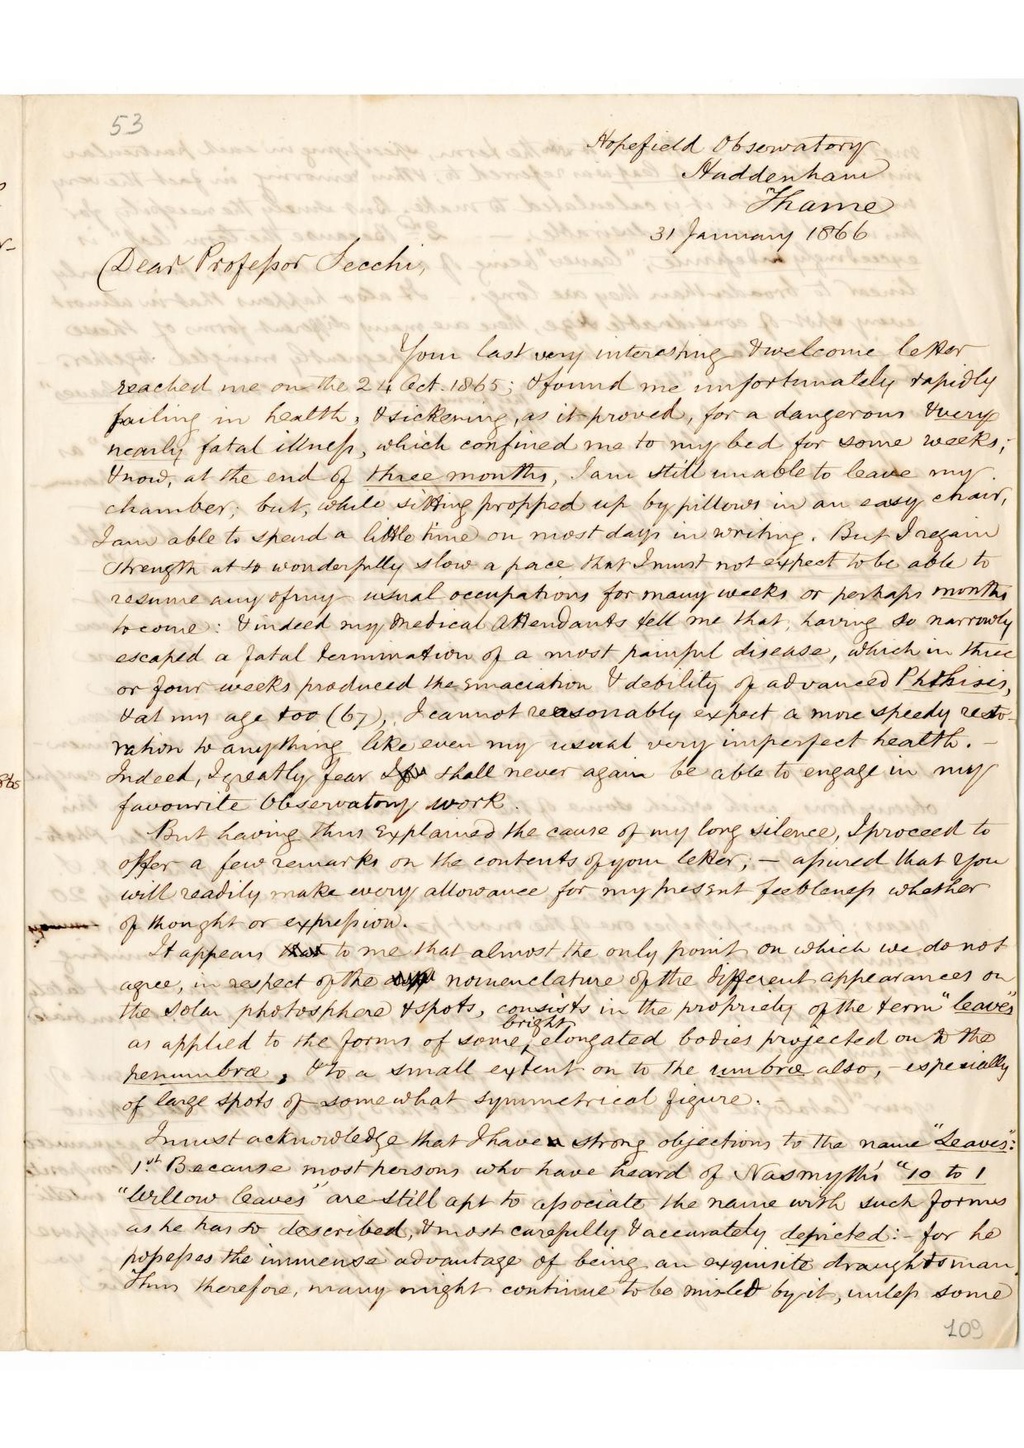 53
Hopefield Observatory
Haddenham
Thame
31 January 1866
Dear Professor Secchi,
Your last very interesting & welcome letter
reached me on the 24 Oct. 1865; & found me unfortunately rapidly
failing in health, & sickening, as it proved, for a dangerous & very
nearly fatal illness, which confined me to my bed for some weeks;
& now, at the end of three months, I am still unable to leave my
chamber; but, while sitting propped up by pillows in an easy chair,
I am able to spend a little time on most days in writing. But I regain
strength at so wonderfully slow a pace that I must not expect to be able to
resume any of my usual occupations for many weeks or perhaps months
to come: & indeed my Medical Attendants tell me that, having so narrowly
escaped a fatal termination of a most painful disease, which in three
or four weeks produced the emaciation & debility of advanced Phthisis,
& at my age too (67), I cannot reasonably expect a more speedy resto-
ration to anything like even my usual very imperfect health. –
Indeed, I greatly fear I shall never again be able to engage in my
favourite Observatory work.
But having thus explained the cause of my long silence, I proceed to
offer a few remarks on the contents of your letter; – assured that you
will readily make every allowance for my present feebleness whether
of thought or expression.
It appears to me that almost the only point on which we do not
agree, in respect of the nomenclature of the different appearances on
the solar photosphere & spots, consists in the propriety of the term "leaves"
bright
as applied to the forms of some elongated bodies projected on to the
penumbræ, & to a small extent on to the umbræ also, – especially
of large spots of somewhat symmetrical figure.
I must acknowledge that I have strong objections to the name "Leaves":
1st. Because most persons who have heard of Nasmyth's "10 to 1
"Willow leaves" are still apt to associate the name with such forms
as he has so described, & most carefully & accurately depicted: – for he
possesses the immense advantage of being an exquisite draughtsman.
Thus therefore, many might continue to be misled by it, unless some
109